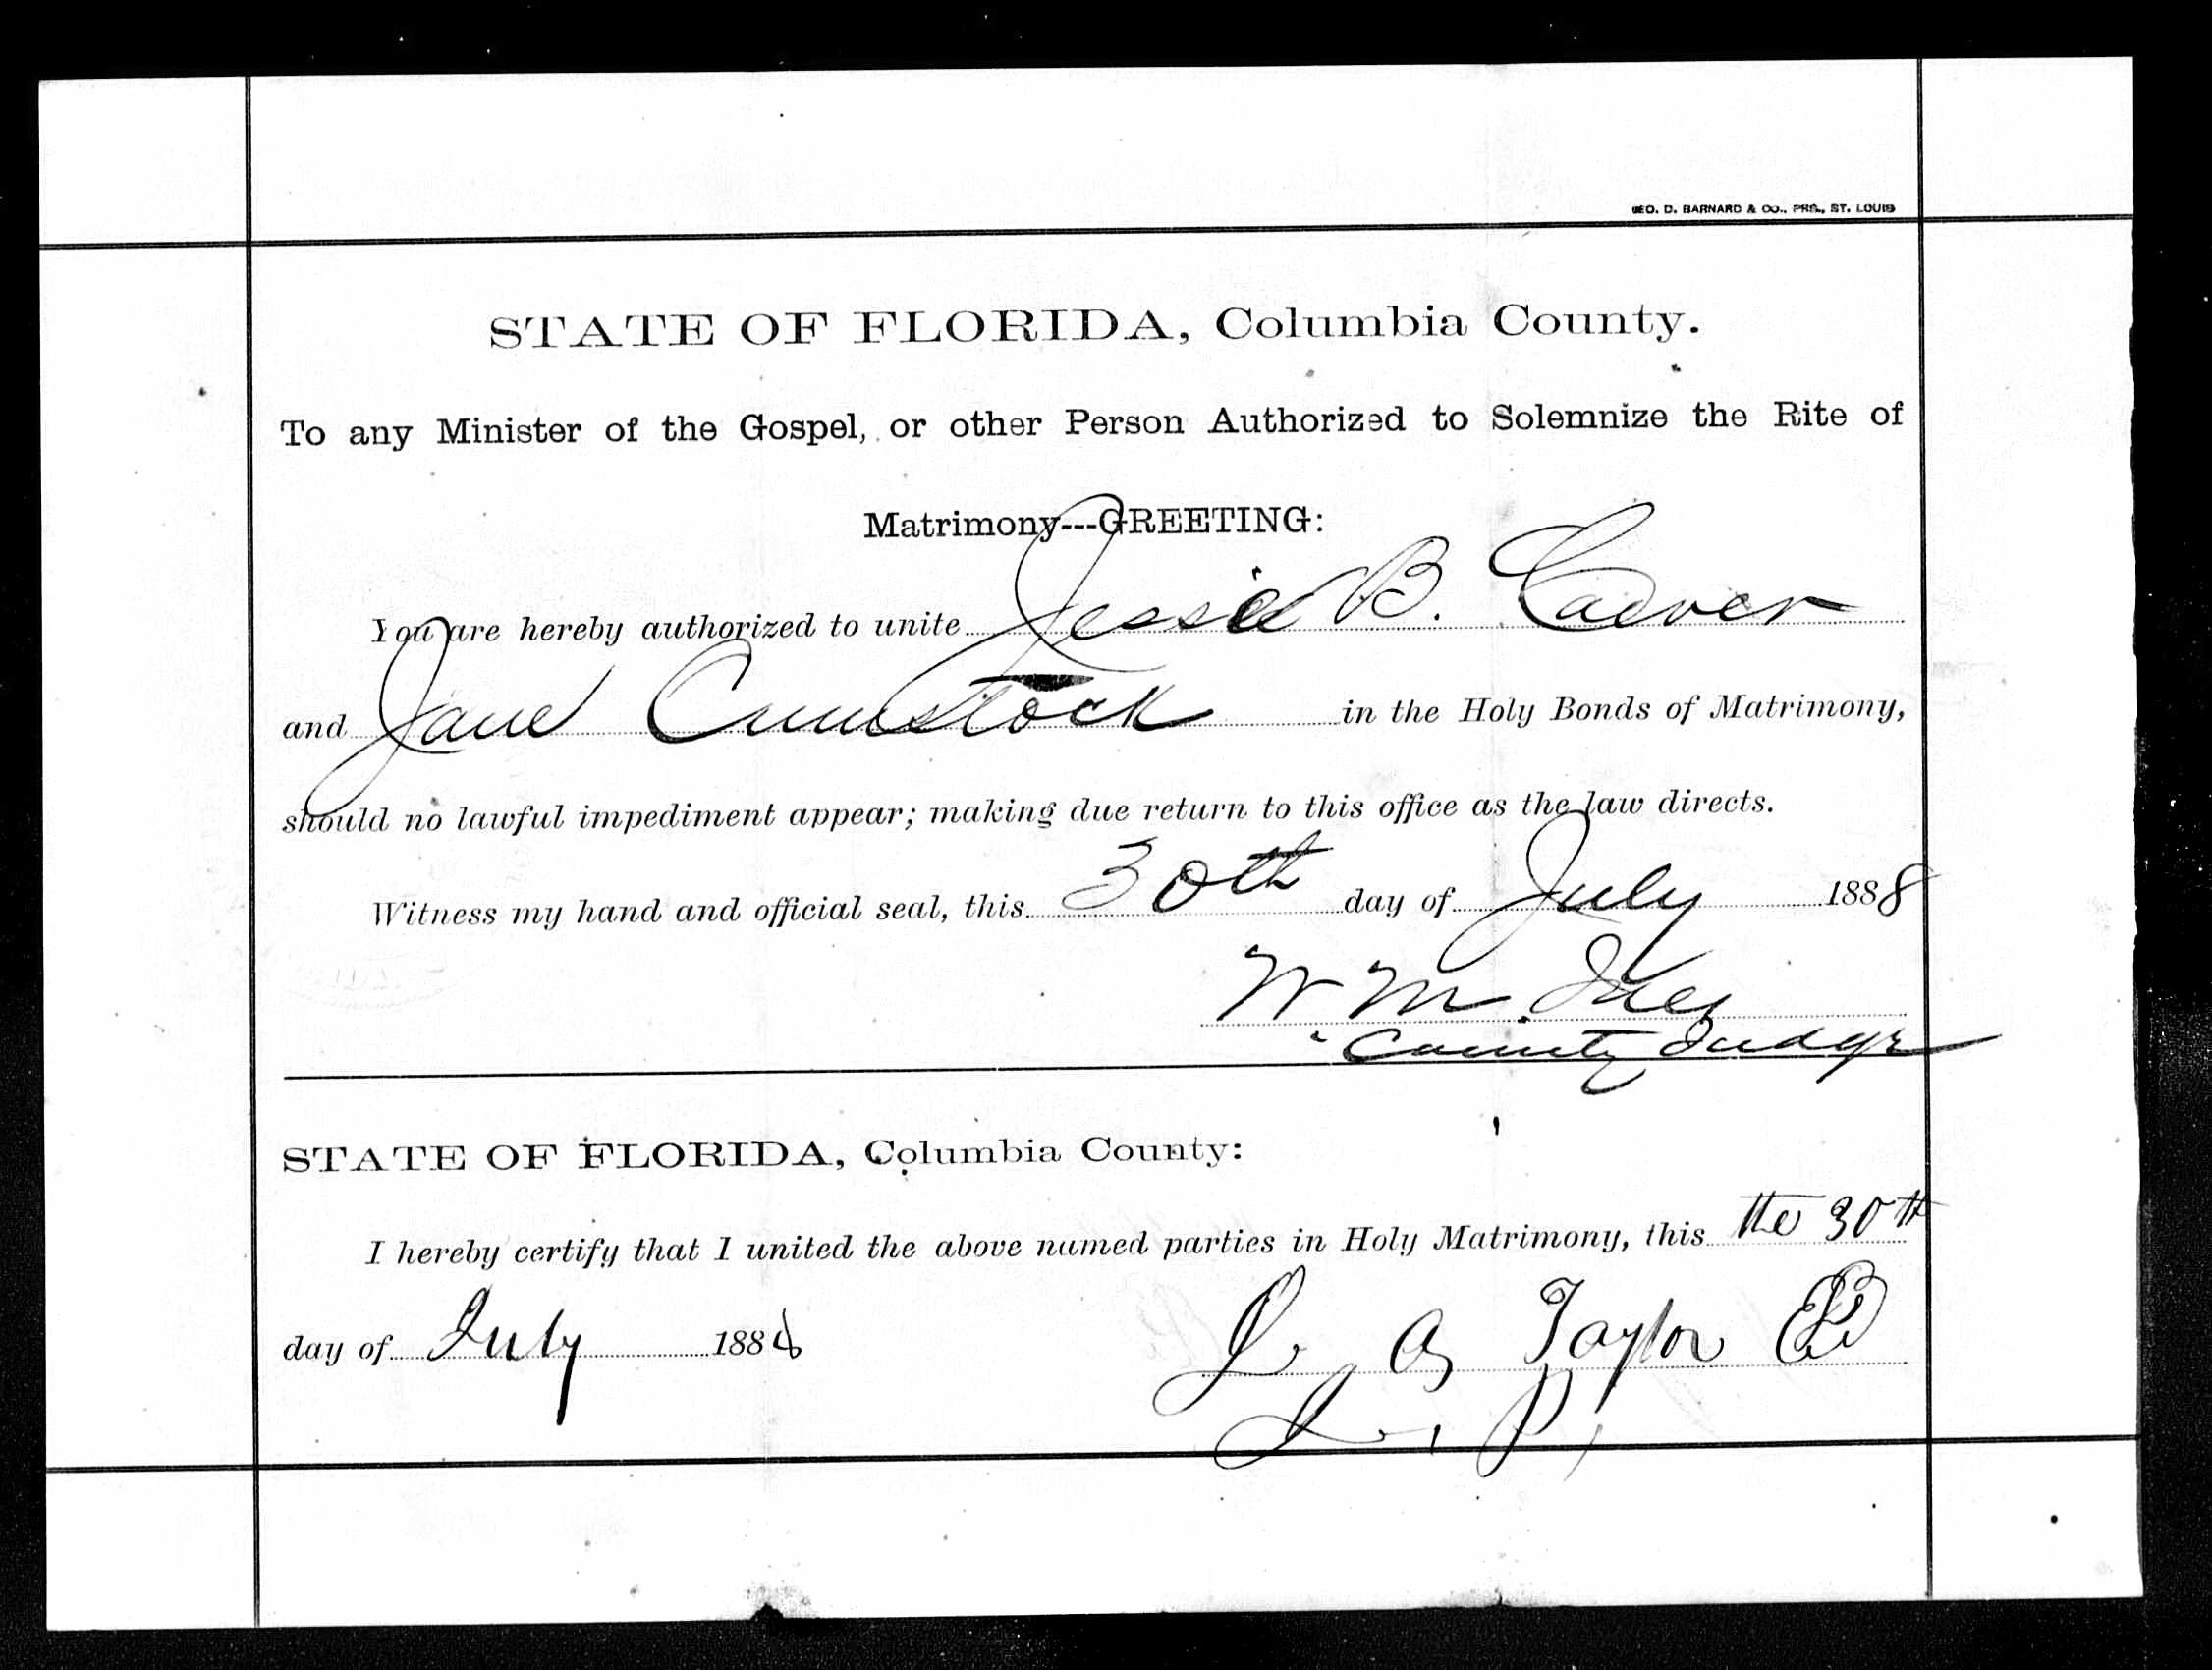 GEO. D. BARNARD & CO., PRS., ST. LOUIS
STATE OF FLORIDA, Columbia County.
To any Minister of the Gospel, or other Person Authorized to Solemnize the Rite of
Matrimony---GREETING:
You are hereby authorized to unite Jessie B. Carver
and Jane Cumstock in the Holy Bonds of Matrimony,
should no lawful impediment appear; making due return to this office as the law directs.
Witness my hand and official seal, this 30th day of July 1888
W. M. Ives
County Judge
STATE OF FLORIDA, Columbia County:
I hereby certify that I united the above named parties in Holy Matrimony, this the 30th
day of July 1888 Taylor